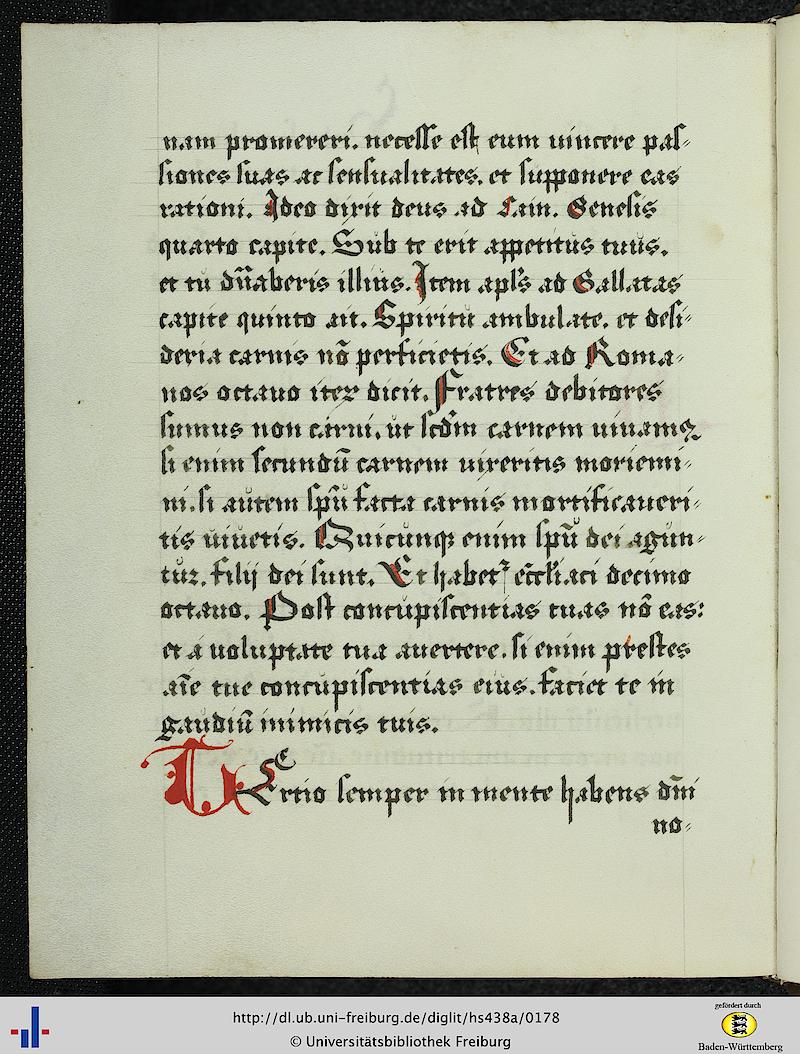 nam promereri. necesse est eum uincere pas-
siones suas ac sensualitates. et supponere eas
rationi. Ideo dixit deus ad Cain. Genesis
quarto capite. Sub te erit appetitus tuus.
et tu dn̄aberis illius. Item apl's ad Gallatas
capite quinto ait. Spiritu ambulate. et desi-
deria carnis nō perficietis. Et ad Roma-
nos octauo iter dicit. Fratres debitores
sumus non carni. ut scdm̄ carnem uiuamꝰ
si enim secundū carnem uixeritis moriemi-
ni. si autem spū facta carnis mortificaueri-
tis uiuetis. Quicunqꝫ enim spū dei agun-
tur. filij dei sunt. Et habetᷣ eccl̄iaci decimo
octauo. Post concupiscentias tuas nō eas:
et a uoluptate tua auertere. si enim prestes
aīe tue concupiscentias eius. faciet te in
gaudiū inimicis tuis.
TErtio semper in mente habens dn̄i
no-
http://dl.ub.uni-freiburg.de/diglit/hs438a/0178
© Universitätsbibliothek Freiburg
gefördert durch
Baden-Württemberg